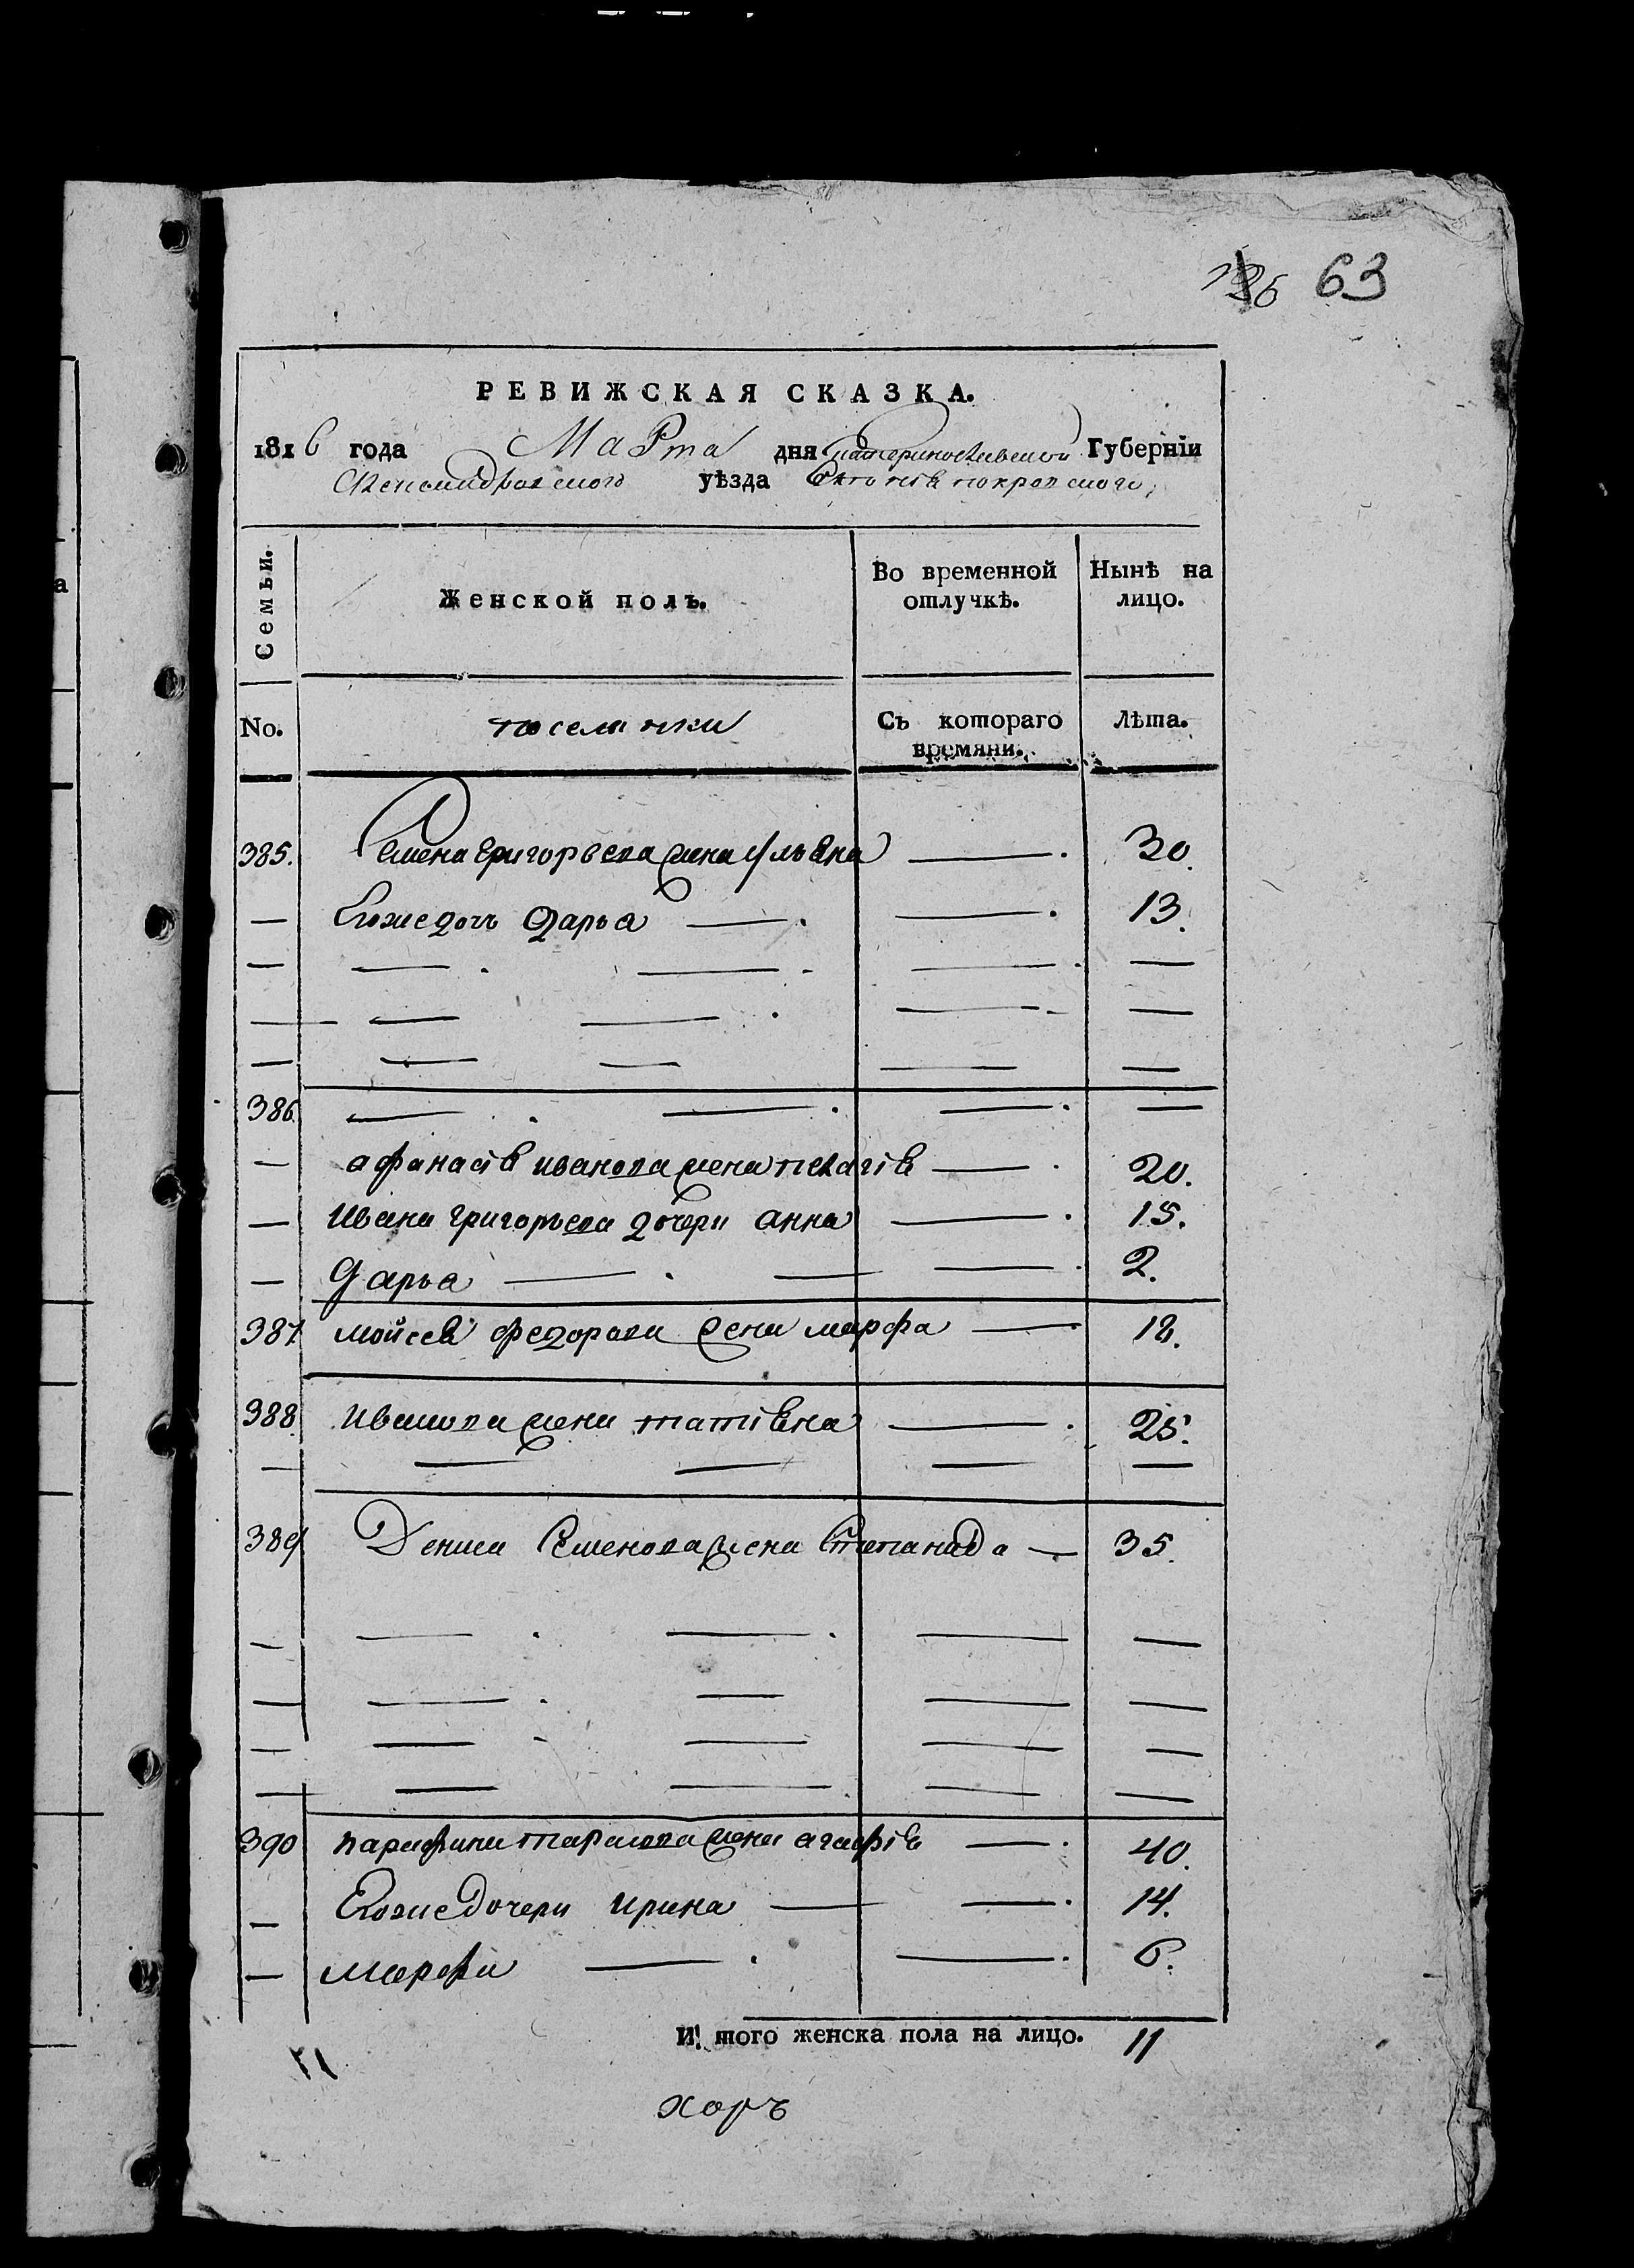 63
РЕВИЖСКАЯ СКАЗКА.
1816 года Марта дня Екатеринославской Губерніи
Александровского уѣзда покровского
Семьи. Женской полъ. Во временной отлучкѣ. Нынѣ на лицо.
No. поселянки Съ котораго времяни. Лѣта.
385. Семена Григорьева жена Ульяна — 30.
— Егоже дочь Дарья — — 13.
— — — — —
— — — — —
— — — — —
386. — — — —
— афанасія иванова жена пелагія — 20.
— Ивана григорьева дочери анна — 15.
— Дарья — — — 2.
387 мойсея федорова жена марфа — 18.
388. Ивашова жена татіяна — 25.
— — — — —
389 Дениса Семенова жена Степанида — 35.
— — — — —
— — — — —
— — — — —
— — — — —
390 парифина тарасова жена агафія — 40.
— Егоже дочери ирина — — 14.
— марфа — — 6.
И того женска пола на лицо. 11
хоръ